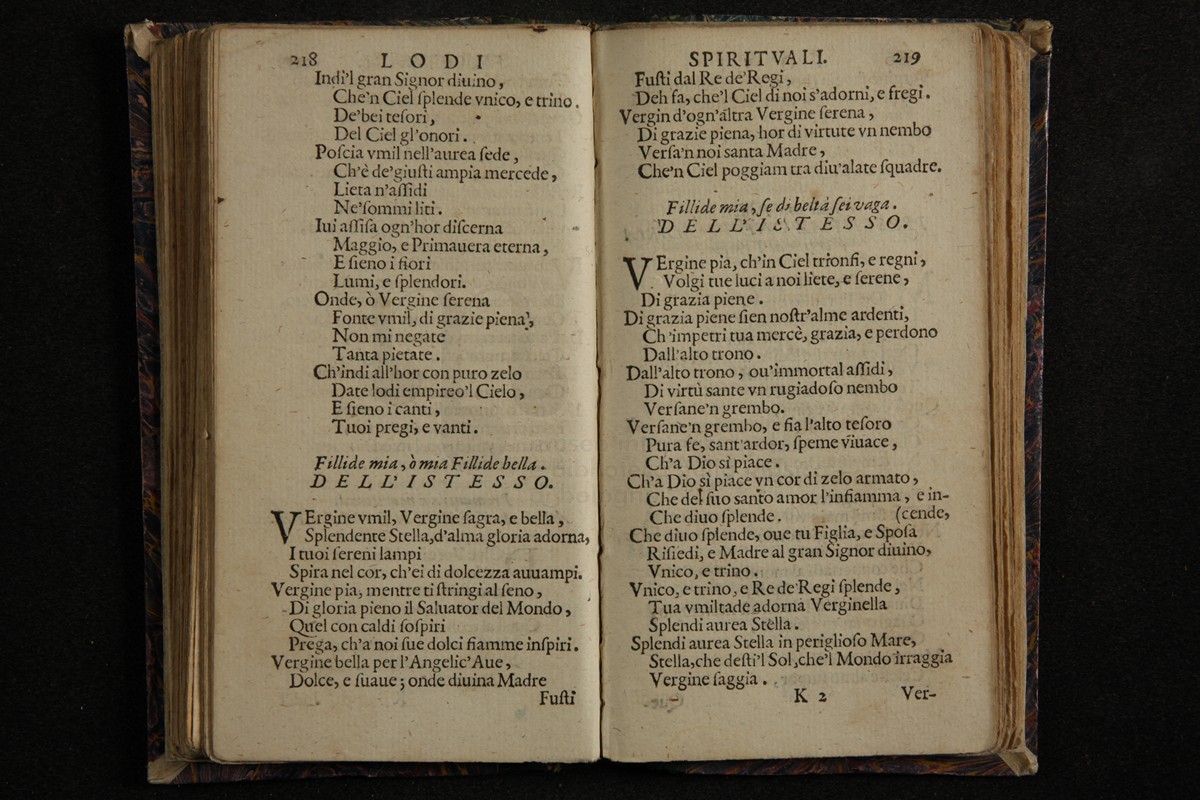 218 LODI
Indi'l gran Signor diuino,
Che'n Ciel ſplende vnico, e trino.
De'bei teſori,
Del Ciel gl'onori.
Poſcia vmil nell'aurea ſede,
Ch'è de'giuſti ampia mercede,
Lieta n'aſſidi
Ne'ſommi liti.
Iui aſſiſa ogn'hor diſcerna
Maggio, e Primauera eterna,
E ſieno i fiori
Lumi, e ſplendori.
Onde, ò Vergine ſerena
Fonte vmil, di grazie piena,
Non mi negate
Tanta pietate.
Ch'indi all'hor con puro zelo
Date lodi empireo'l Cielo,
E ſieno i canti,
Tuoi pregi, e vanti.
Fillide mia, ò mia Fillide bella.
DELL'ISTESSO.
VErgine vmil, Vergine ſagra, e bella,
Splendente Stella,d'alma gloria adorna,
I tuoi ſereni lampi
Spira nel cor, ch'ei di dolcezza auuampi.
Vergine pia, mentre ti ſtringi al ſeno,
Di gloria pieno il Saluator del Mondo,
Quel con caldi ſoſpiri
Prega, ch'a noi ſue dolci fiamme inſpiri.
Vergine bella per l'Angelic'Aue,
Dolce, e ſuaue; onde diuina Madre
Fuſti
SPIRITVALI. 219
Fuſti dal Re de'Regi,
Deh fa, che'l Ciel di noi s'adorni, e fregi.
Vergin d'ogn'altra Vergine ſerena,
Di grazie piena, hor di virtute vn nembo
Verſa'n noi santa Madre,
Che'n Ciel poggiam tra diu'alate ſquadre.
Fillide mia, ſe di beltà ſei vaga.
DELL'ISTESSO.
VErgine pia, ch'in Ciel trionfi, e regni,
Volgi tue luci a noi liete, e ſerene,
Di grazia piene.
Di grazia piene ſien noſtr'alme ardenti,
Ch'impetri tua mercè, grazia, e perdono
Dall'alto trono.
Dall'alto trono, ou'immortal aſſidi,
Di virtù sante vn rugiadoſo nembo
Verſane'n grembo.
Verſane'n grembo, e fia l'alto teſoro
Pura fe, sant'ardor, ſpeme viuace,
Ch'a Dio sì piace.
Ch'a Dio sì piace vn cor di zelo armato,
Che del ſuo santo amor l'infiamma, e in-
Che diuo ſplende. (cende,
Che diuo ſplende, oue tu Figlia, e Spoſa
Riſiedi, e Madre al gran Signor diuino,
Vnico, e trino.
Vnico, e trino, e Re de'Regi ſplende,
Tua vmiltade adorna Verginella
Splendi aurea Stella.
Splendi aurea Stella in periglioſo Mare,
Stella,che deſti'l Sol,che'l Mondo irraggia
Vergine ſaggia.
K 2 Ver-